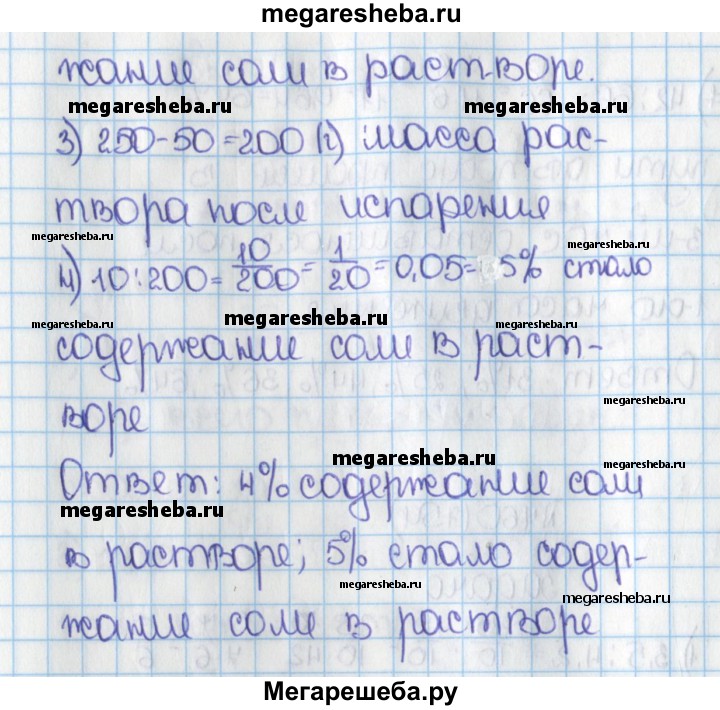 megaresheba.ru
жание соли в растворе.
megaresheba.ru megaresheba.ru
3) 250-50=200 (г) масса рас-
твора после испарения
megaresheba.ru megaresheba.ru
4) 10:200= 10/200 = 1/20 = 0,05= 5% стало
megaresheba.ru megaresheba.ru megaresheba.ru
содержание соли в раст-
воре
megaresheba.ru
megaresheba.ru megaresheba.ru
Ответ: 4% содержание соли
megaresheba.ru
в растворе; 5% стало содер-
megaresheba.ru megaresheba.ru
жание соли в растворе
Мегарешеба.ру